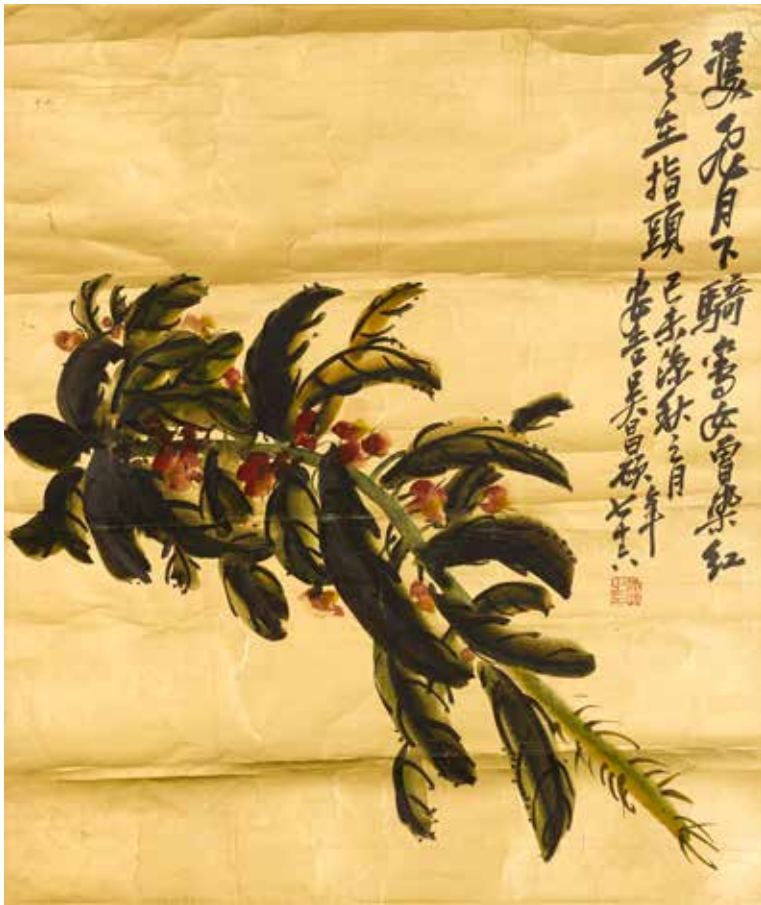 雙飛月下騎鸞女曾染紅
雲在指頭
己未深秋之月
安吉吳昌碩年七十六